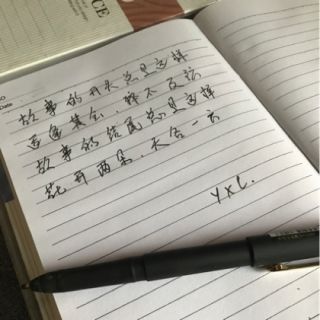 CE
NO
Date
故事的开头总是这样
适逢其会，猝不及防
故事的结尾总是这样
花开两朵，天各一方
YXC.